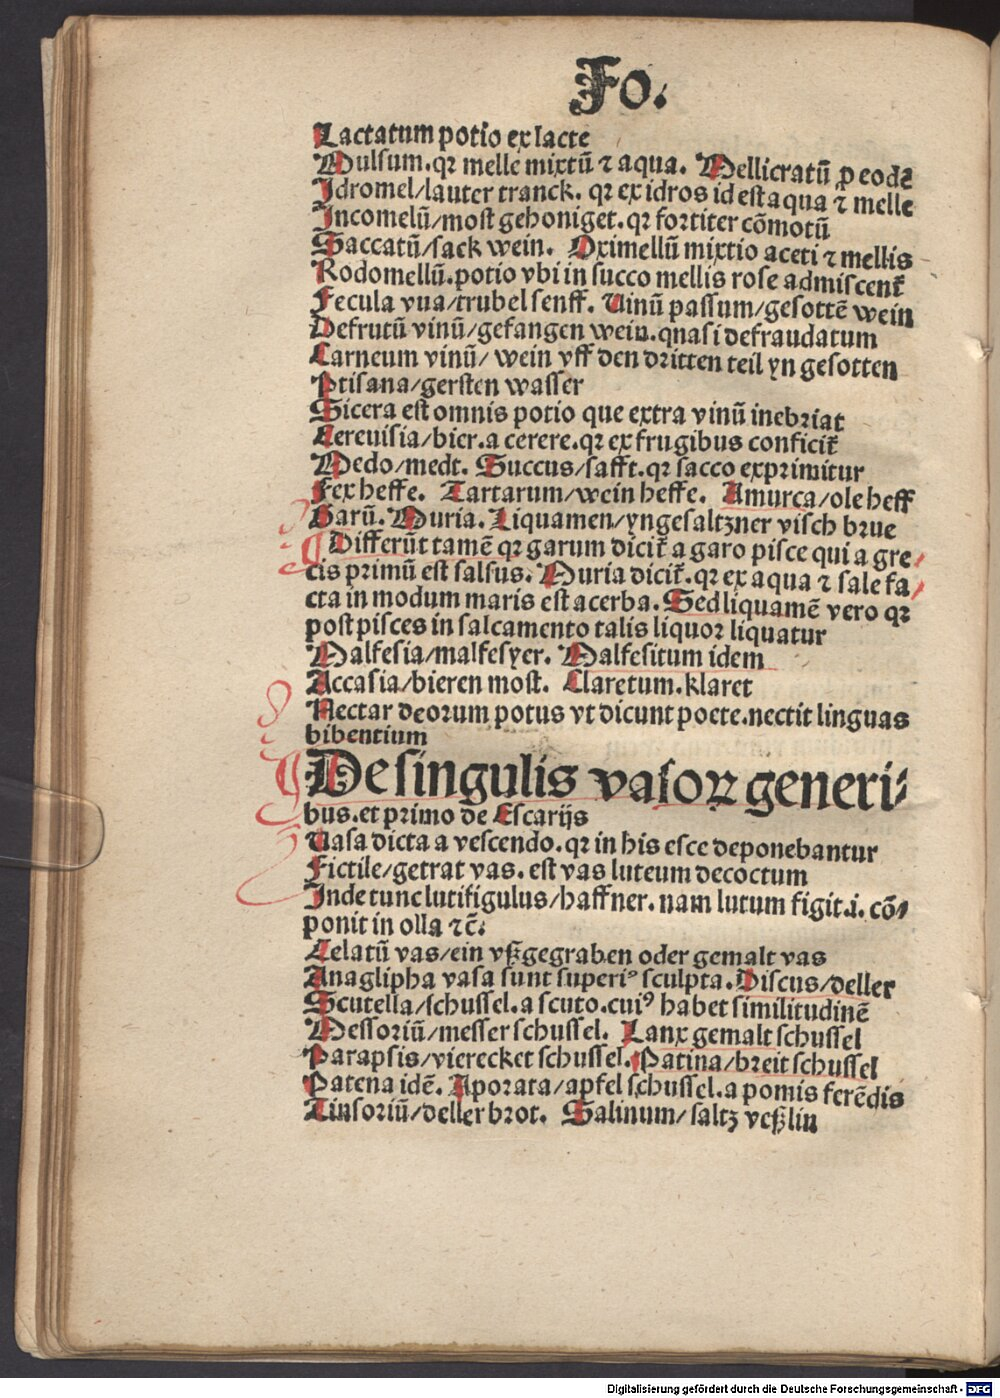 Fo.
Lactatum potio ex lacte
Mulsum. qꝛ melle mixtū ⁊ aqua. Mellicratū ꝓ eodē
Idromel/lauter tranck. qꝛ ex idros id est aqua ⁊ melle
Incomelū/most gehoniget. qꝛ fortiter cōmotū
Saccatū/sack wein. Oximellū mixtio aceti ⁊ mellis
Rodomellū. potio vbi in succo mellis rose admiscent᷑
Fecula vua/trubel senff. Uinū passum/gesottē wein
Defrutū vinū/gefangen wein. qnasi defraudatum
Carneum vinū/ wein vff den dritten teil yn gesotten
Ptisana/gersten wasser
Sicera est omnis potio que extra vinū inebriat
Cereuisia/bier. a cerere. qꝛ ex frugibus conficit᷑
Medo/medt. Succus/safft. qꝛ sacco exprimitur
Fex heffe. Tartarum/wein heffe. Amurca/ole heff
Garū. Muria. Liquamen/yngesaltzner visch brue
¶ Differūt tamē qꝛ garum dicit᷑ a garo pisce qui a gre⸗
cis primū est salsus. Muria dicit᷑. qꝛ ex aqua ⁊ sale fa⸗
cta in modum maris est acerba. Sed liquamē vero qꝛ
post pisces in salcamento talis liquor liquatur
Malfesia/malfesyer. Malfesitum idem
Accasia/bieren most. Claretum. klaret
Nectar deorum potus vt dicunt poete. nectit linguas
bibentium
¶ De singulis vasoꝝ generi⸗
bus. et primo de Escarijs
Uasa dicta a vescendo. qꝛ in his esce deponebantur
Fictile/getrat vas. est vas luteum decoctum
Inde tunc lutifigulus/haffner. nam lutum figit .i. cō⸗
ponit in olla ⁊c̄.
Celatū vas/ein vßgegraben oder gemalt vas
Anaglipha vasa sunt superiꝰ sculpta. Discus/deller
Scutella/schussel. a scuto. cuiꝰ habet similitudinē
Messoriū/messer schussel. Lanx gemalt schussel
Parapsis/vierecket schussel. Patina/breit schussel
Patena idē. Aporata/apfel schussel. a pomis ferēdis
Tinsoriū/deller brot. Salinum/saltz veßlin
Digitalisierung gefördert durch die Deutsche Forschungsgemeinschaft - DFG